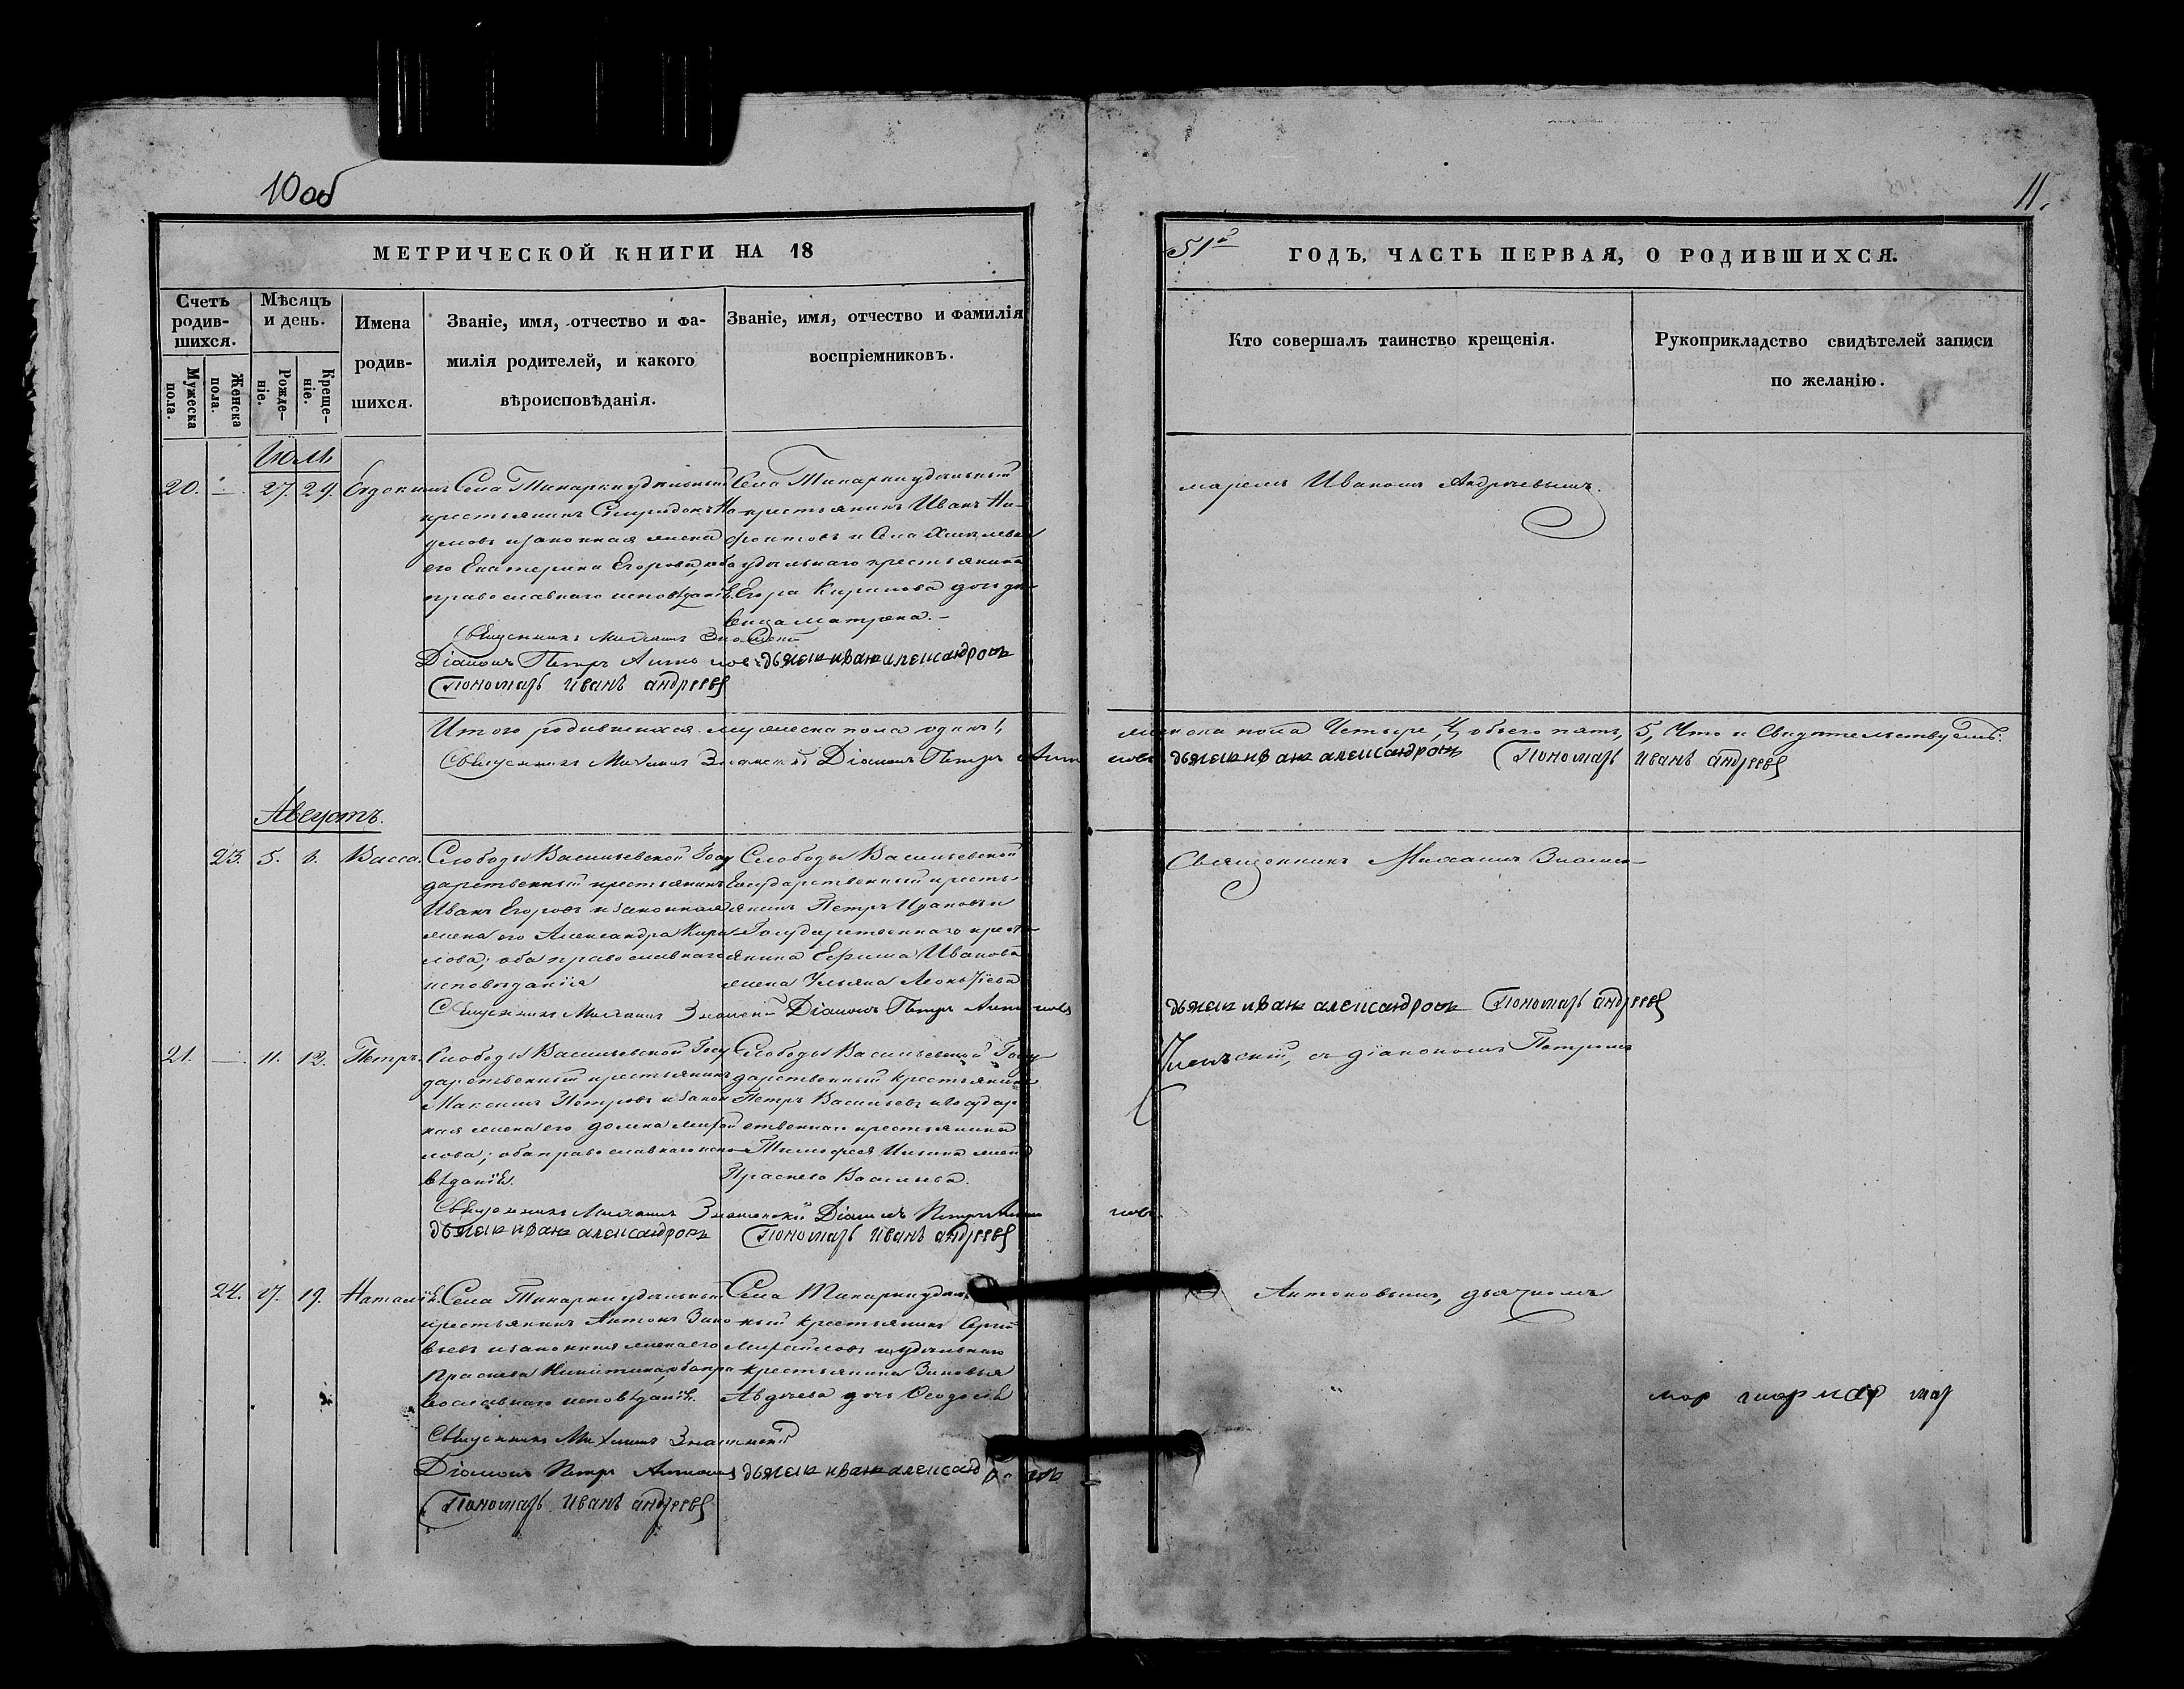 10 об
11.
МЕТРИЧЕСКОЙ КНИГИ НА 18
51й ГОДЪ, ЧАСТЬ ПЕРВАЯ, О РОДИВШИХСЯ.
Счетъ родив-шихся.
Мужеска пола.
Женска пола.
Мѣсяцъ и день.
Рожде-ніе.
Креще-ніе.
Имена родив-шихся.
Званіе, имя, отчество и фа-
милія родителей, и какого
вѣроисповѣданія.
Званіе, имя, отчество и фамилія
воспріемниковъ.
Кто совершалъ таинство крещенія.
Рукоприкладство свидѣтелей записи
по желанію.
Июль
20. — 27. 29. Евдокимъ
Села Тинарки удѣльный
крестьянинъ Спиридонъ На
умовъ и законная жена
его Екатерина Егорова, оба
православнаго исповѣданія.
Села Тинарки удѣльный
крестьянинъ Иванъ
и села
удѣльнаго крестьянина
Егора Кирилова дочь дѣ
вица Матрена.
маремъ Иваномъ Андреевымъ.
Священникъ Михаилъ Знаменскій
Діаконъ Петръ Антоновъ дьячекъ иванъ александровъ
Пономарь иванъ андреевъ
Итого родившихся мужеска пола одинъ 1,
женска пола Четыре, 4, обоего пять, 5, Что и Свидетельствуемъ.
Священникъ Михаилъ Знаменскій Діаконъ Петръ Антоновъ дьячекъ иванъ александровъ Пономарь иванъ андреевъ
Августъ.
23. 5. Васса.
Слободы Васильевской Госу
дарственный крестьянинъ
Иванъ Егоровъ и законная
жена его Александра Кири
лова; оба православнаго
исповѣданія
Слободы Васильевской
Государственный кресть
янинъ Петръ и
Государственнаго кресть
янина Ефима Иванова
жена Ульяна Леонтіева
Священникъ Михаилъ Знамен
Священникъ Михаилъ Знаменскій Діаконъ Петръ Антоновъ
дьячекъ иванъ александровъ Пономарь андреевъ
21. — 11. 12. Петръ.
Слободы Васильевской Госу
дарственный крестьянинъ
Максимъ Петровъ и закон
ная жена его Домна
лова; оба православнаго испо
вѣданія.
Слободы Васильевской Госу
дарственный крестьянинъ
Петръ Васильевъ и государ
ственнаго крестьянина
Тимофея Ильина жена
Прасковья Васильева.
скій, съ діакономъ Петромъ
Священникъ Михаилъ Знаменскій Діаконъ Петръ Антоновъ
дьячекъ иванъ александровъ Пономарь иванъ андреевъ
24. 17. 19. Наталія.
Села Тинарки удѣльный
крестьянинъ Антонъ Зино
вьевъ и законная жена его
Прасковья Никитина, оба пра
вославнаго исповѣданія.
Села Тинарки удѣль
ный крестьянинъ Сергѣй
и удѣльнаго
крестьянина Зиновья
Авдѣева дочь Феодосія
Антоновымъ, дьячкомъ
Священникъ Михаилъ Знаменскій
Діаконъ Петръ Антоновъ дьячекъ иванъ александровъ
Пономарь иванъ андреевъ